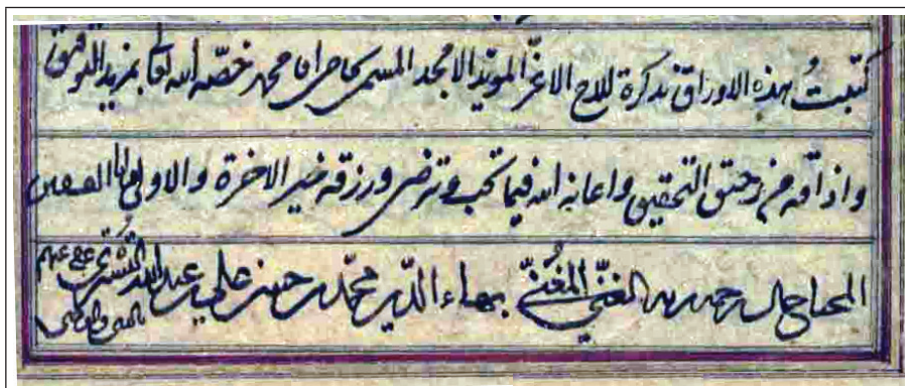 كتبتُ هذه الاوراق تذكرة للاخ الاعزّ الموئد الامجد المسمى بحاجى اقا محمد خصّه الله تعالى بمزيد التوفيق
واذاقه من رحيق التحقيق واعانه الله فيما تحب وترضى ورزقه خير الاخرة والاولى وانا الضعيف
المحتاج الى رحمة ربه الغنىّ المُغنىّ بهاء الدّين محمّد بن حسن على بن عبد الله التُسْتَرى عفى عنهم بالنبى والوصى